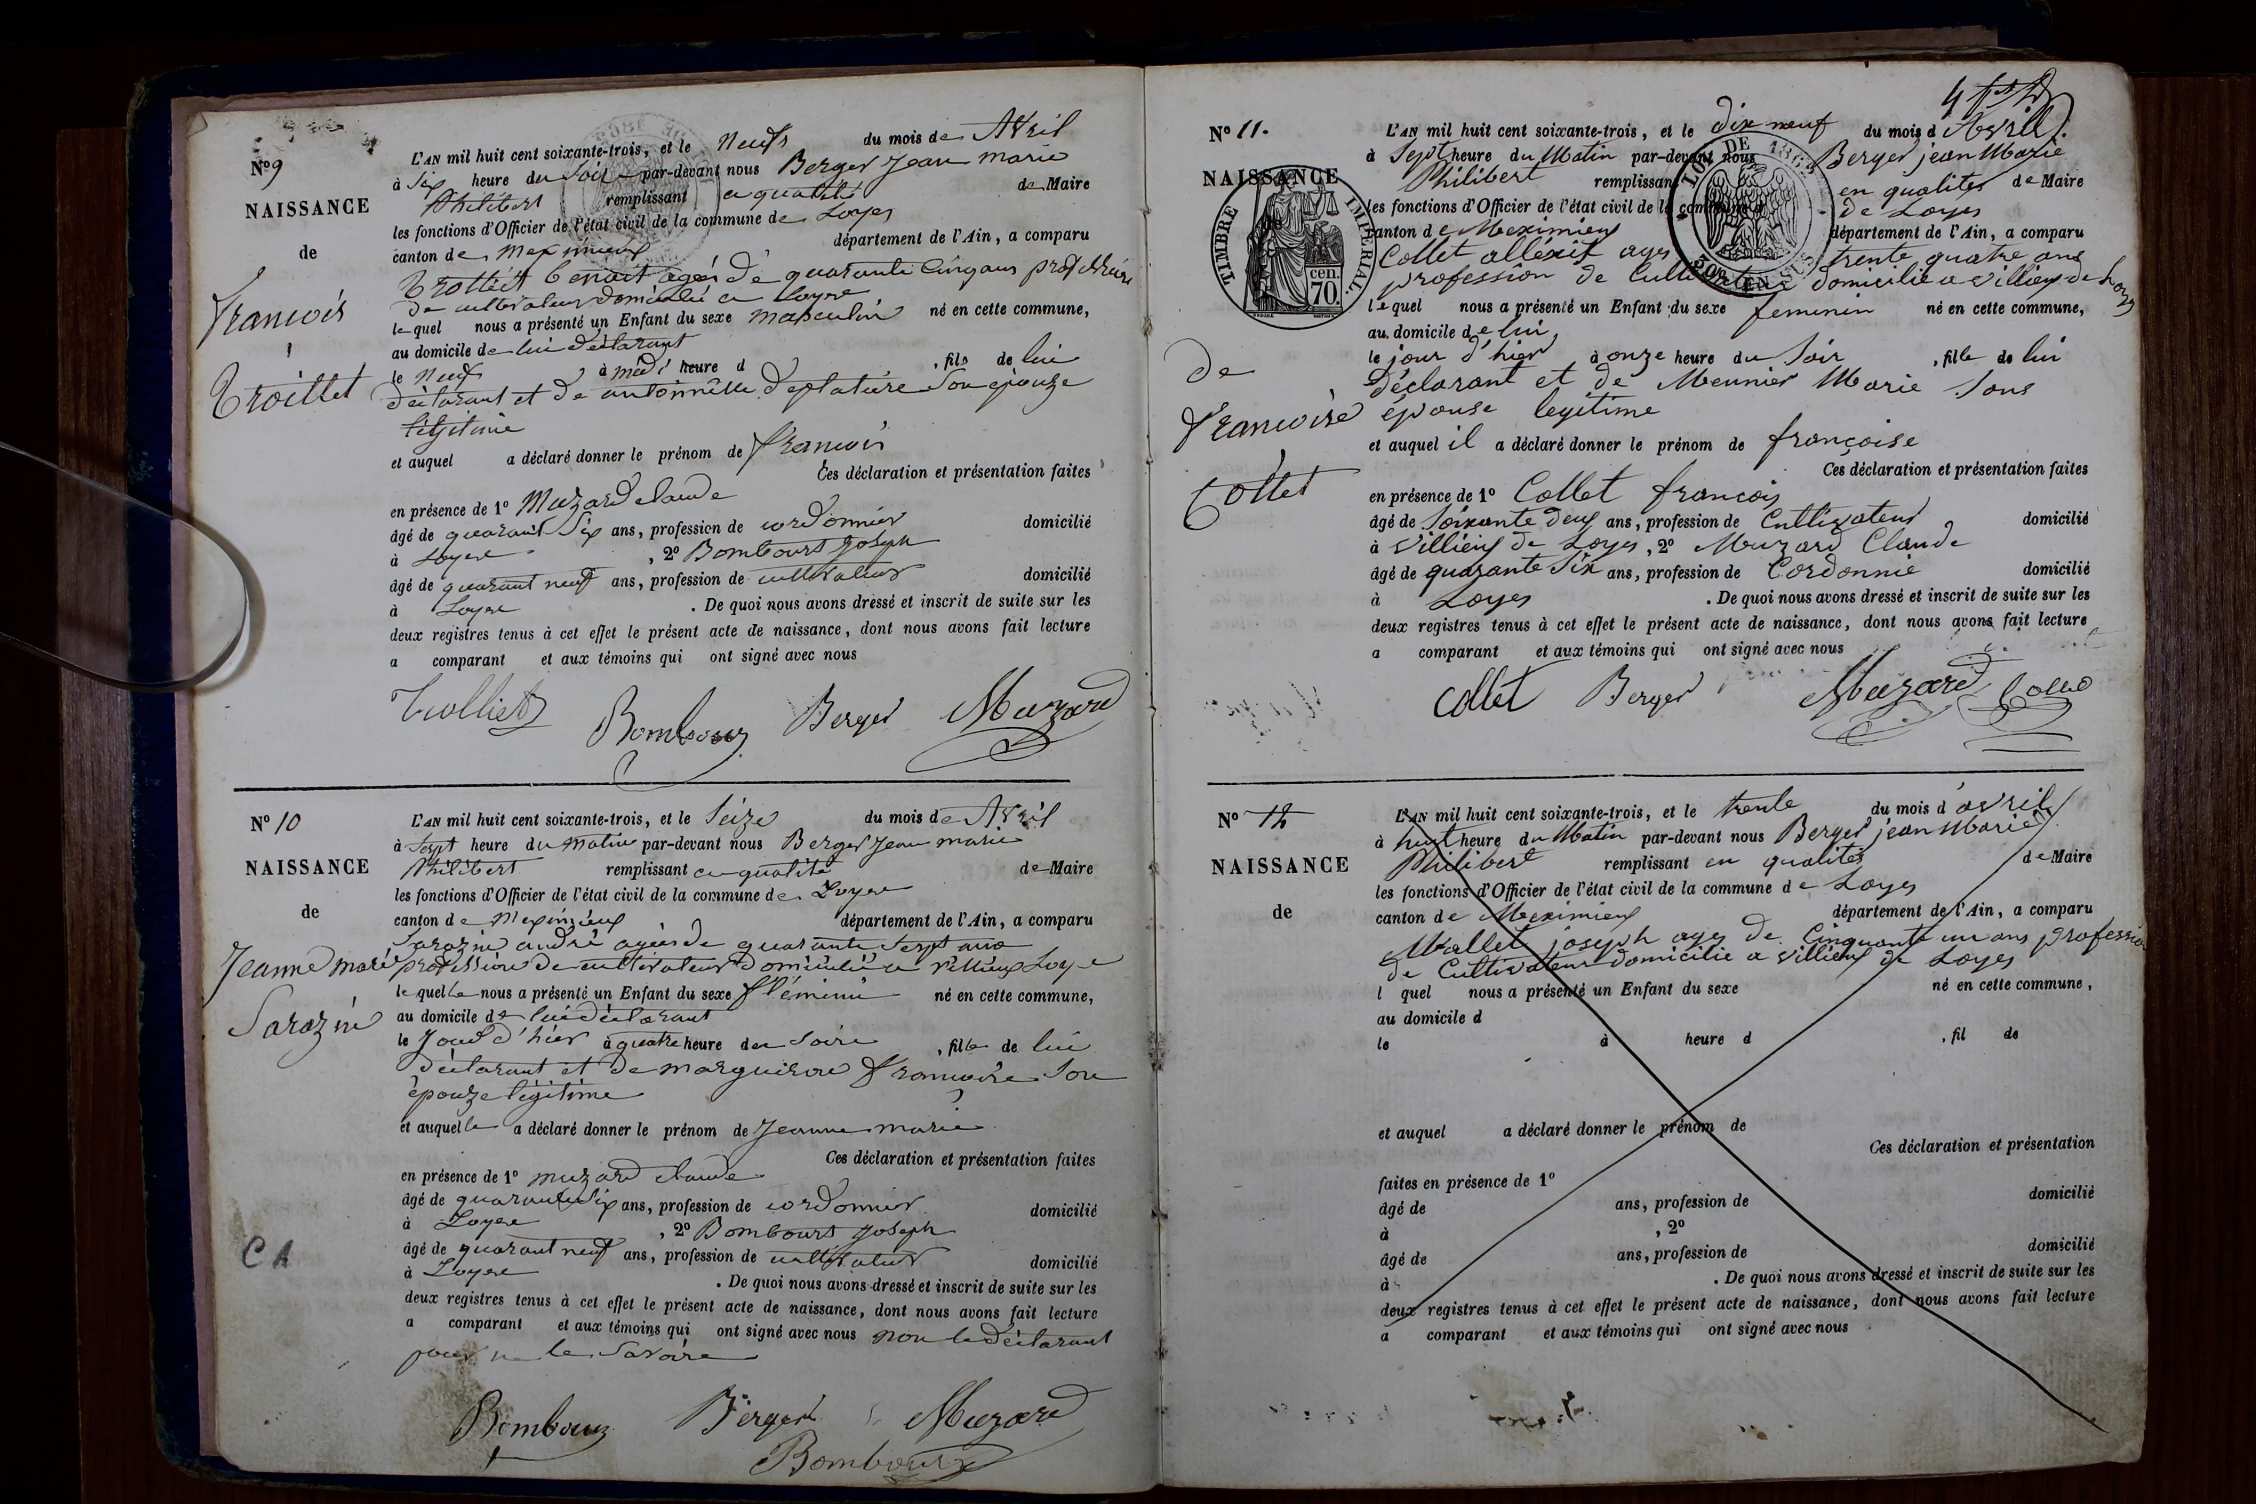 Nº 9
NAISSANCE
de
François
Troillet
L'AN mil huit cent soixante-trois, et le Neufs du mois de Avril
à Six heure du Soir par-devant nous Berger Jean marie
Philibert remplissant en qualité de Maire
les fonctions d'Officier de l'état civil de la commune de Loyes
canton de Meximieux département de l'Ain, a comparu
benoit agés de quarante Cinq ans
de cultivateur domicilié a Loyes
le quel nous a présenté un Enfant du sexe masculin né en cette commune,
au domicile de lui déclarant
le Neuf à midi heure d , fils de lui
déclarant et de antoinette deplatière Son epouze
légitime
et auquel a déclaré donner le prénom de François
Ces déclaration et présentation faites
en présence de 1º Muzard claude
âgé de quarant Six ans, profession de cordonnier domicilié
à Loyes , 2º Bombours Joseph
âgé de quarant neuf ans, profession de cultivateur domicilié
à Loyes . De quoi nous avons dressé et inscrit de suite sur les
deux registres tenus à cet effet le présent acte de naissance, dont nous avons fait lecture
a comparant et aux témoins qui ont signé avec nous
Trolliet Bombour Berger Muzard
Nº 10
NAISSANCE
de
Jeanne marie
Sarazin
L'AN mil huit cent soixante-trois, et le Seize du mois de Avril
à Sept heure du matin par-devant nous Berger Jean marie
Philibert remplissant en qualité de Maire
les fonctions d'Officier de l'état civil de la commune de Loyes
canton de Meximieux département de l'Ain, a comparu
Sarazin andré agés de quarante Sept ans
profession de cultivateur domicilié a villieux Loye
le quelle nous a présenté un Enfant du sexe féminin né en cette commune,
au domicile de lui déclarant
le Jour d'hier à quatre heure du Soire , fille de lui
déclarant et de marguiron Françoise Son
épouze légitime
et auquelle a déclaré donner le prénom de Jeanne marie
Ces déclaration et présentation faites
en présence de 1º muzard claude
âgé de quarante Six ans, profession de cordonnier domicilié
à Loyes , 2º Bombours Joseph
âgé de quarant neuf ans, profession de cultivateur domicilié
à Loyes . De quoi nous avons dressé et inscrit de suite sur les
deux registres tenus à cet effet le présent acte de naissance, dont nous avons fait lecture
a comparant et aux témoins qui ont signé avec nous non le déclarant
pour ne le Savoire
Bombour Berger Muzard
Bombour
CA
Nº 11.
NAISSANCE
TIMBRE IMPERIAL
cen.
70.
de
Françoise
Collet
L'AN mil huit cent soixante-trois, et le dix neuf du mois d Avril
à Sept heure du Matin par-devant nous Berger jean Marie
Philibert remplissant en qualites de Maire
les fonctions d'Officier de l'état civil de la commune de Loyes
canton de Meximieux département de l'Ain, a comparu
Collet alléxit ages trente quatre ans
profession de Cultivateur domicilié a Villieux de Loyes
lequel nous a présenté un Enfant du sexe feminin né en cette commune,
au domicile de lui
le jour d'hier à onze heure du Soir , fille de lui
Déclarant et de Meunier Marie Sons
épouse legitime
et auquel il a déclaré donner le prénom de françoise
Ces déclaration et présentation faites
en présence de 1º Collet françois
âgé de Soixante deux ans, profession de Cultivateur domicilié
à Villieux de Loyes , 2º Muzard Claude
âgé de quarante Six ans, profession de Cordonnie domicilié
à Loyes . De quoi nous avons dressé et inscrit de suite sur les
deux registres tenus à cet effet le présent acte de naissance, dont nous avons fait lecture
a comparant et aux témoins qui ont signé avec nous
Collet Berger Muzard
Nº 12
NAISSANCE
de
L'AN mil huit cent soixante-trois, et le trente du mois d'avril
à huit heure du Matin par-devant nous Berger jean Marie
Philibert remplissant en qualites de Maire
les fonctions d'Officier de l'état civil de la commune de Loyes
canton de Meximieux département de l'Ain, a comparu
Mallet joseph ages de Cinquante un ans profession
de Cultivateur domicilie a Villieux de Loyes
l quel nous a présenté un Enfant du sexe né en cette commune,
au domicile d
le à heure d , fil de
et auquel a déclaré donner le prénom de
Ces déclaration et présentation
faites en présence de 1º
âgé de ans, profession de domicilié
à , 2º
âgé de ans, profession de domicilié
à . De quoi nous avons dressé et inscrit de suite sur les
deux registres tenus à cet effet le présent acte de naissance, dont nous avons fait lecture
a comparant et aux témoins qui ont signé avec nous